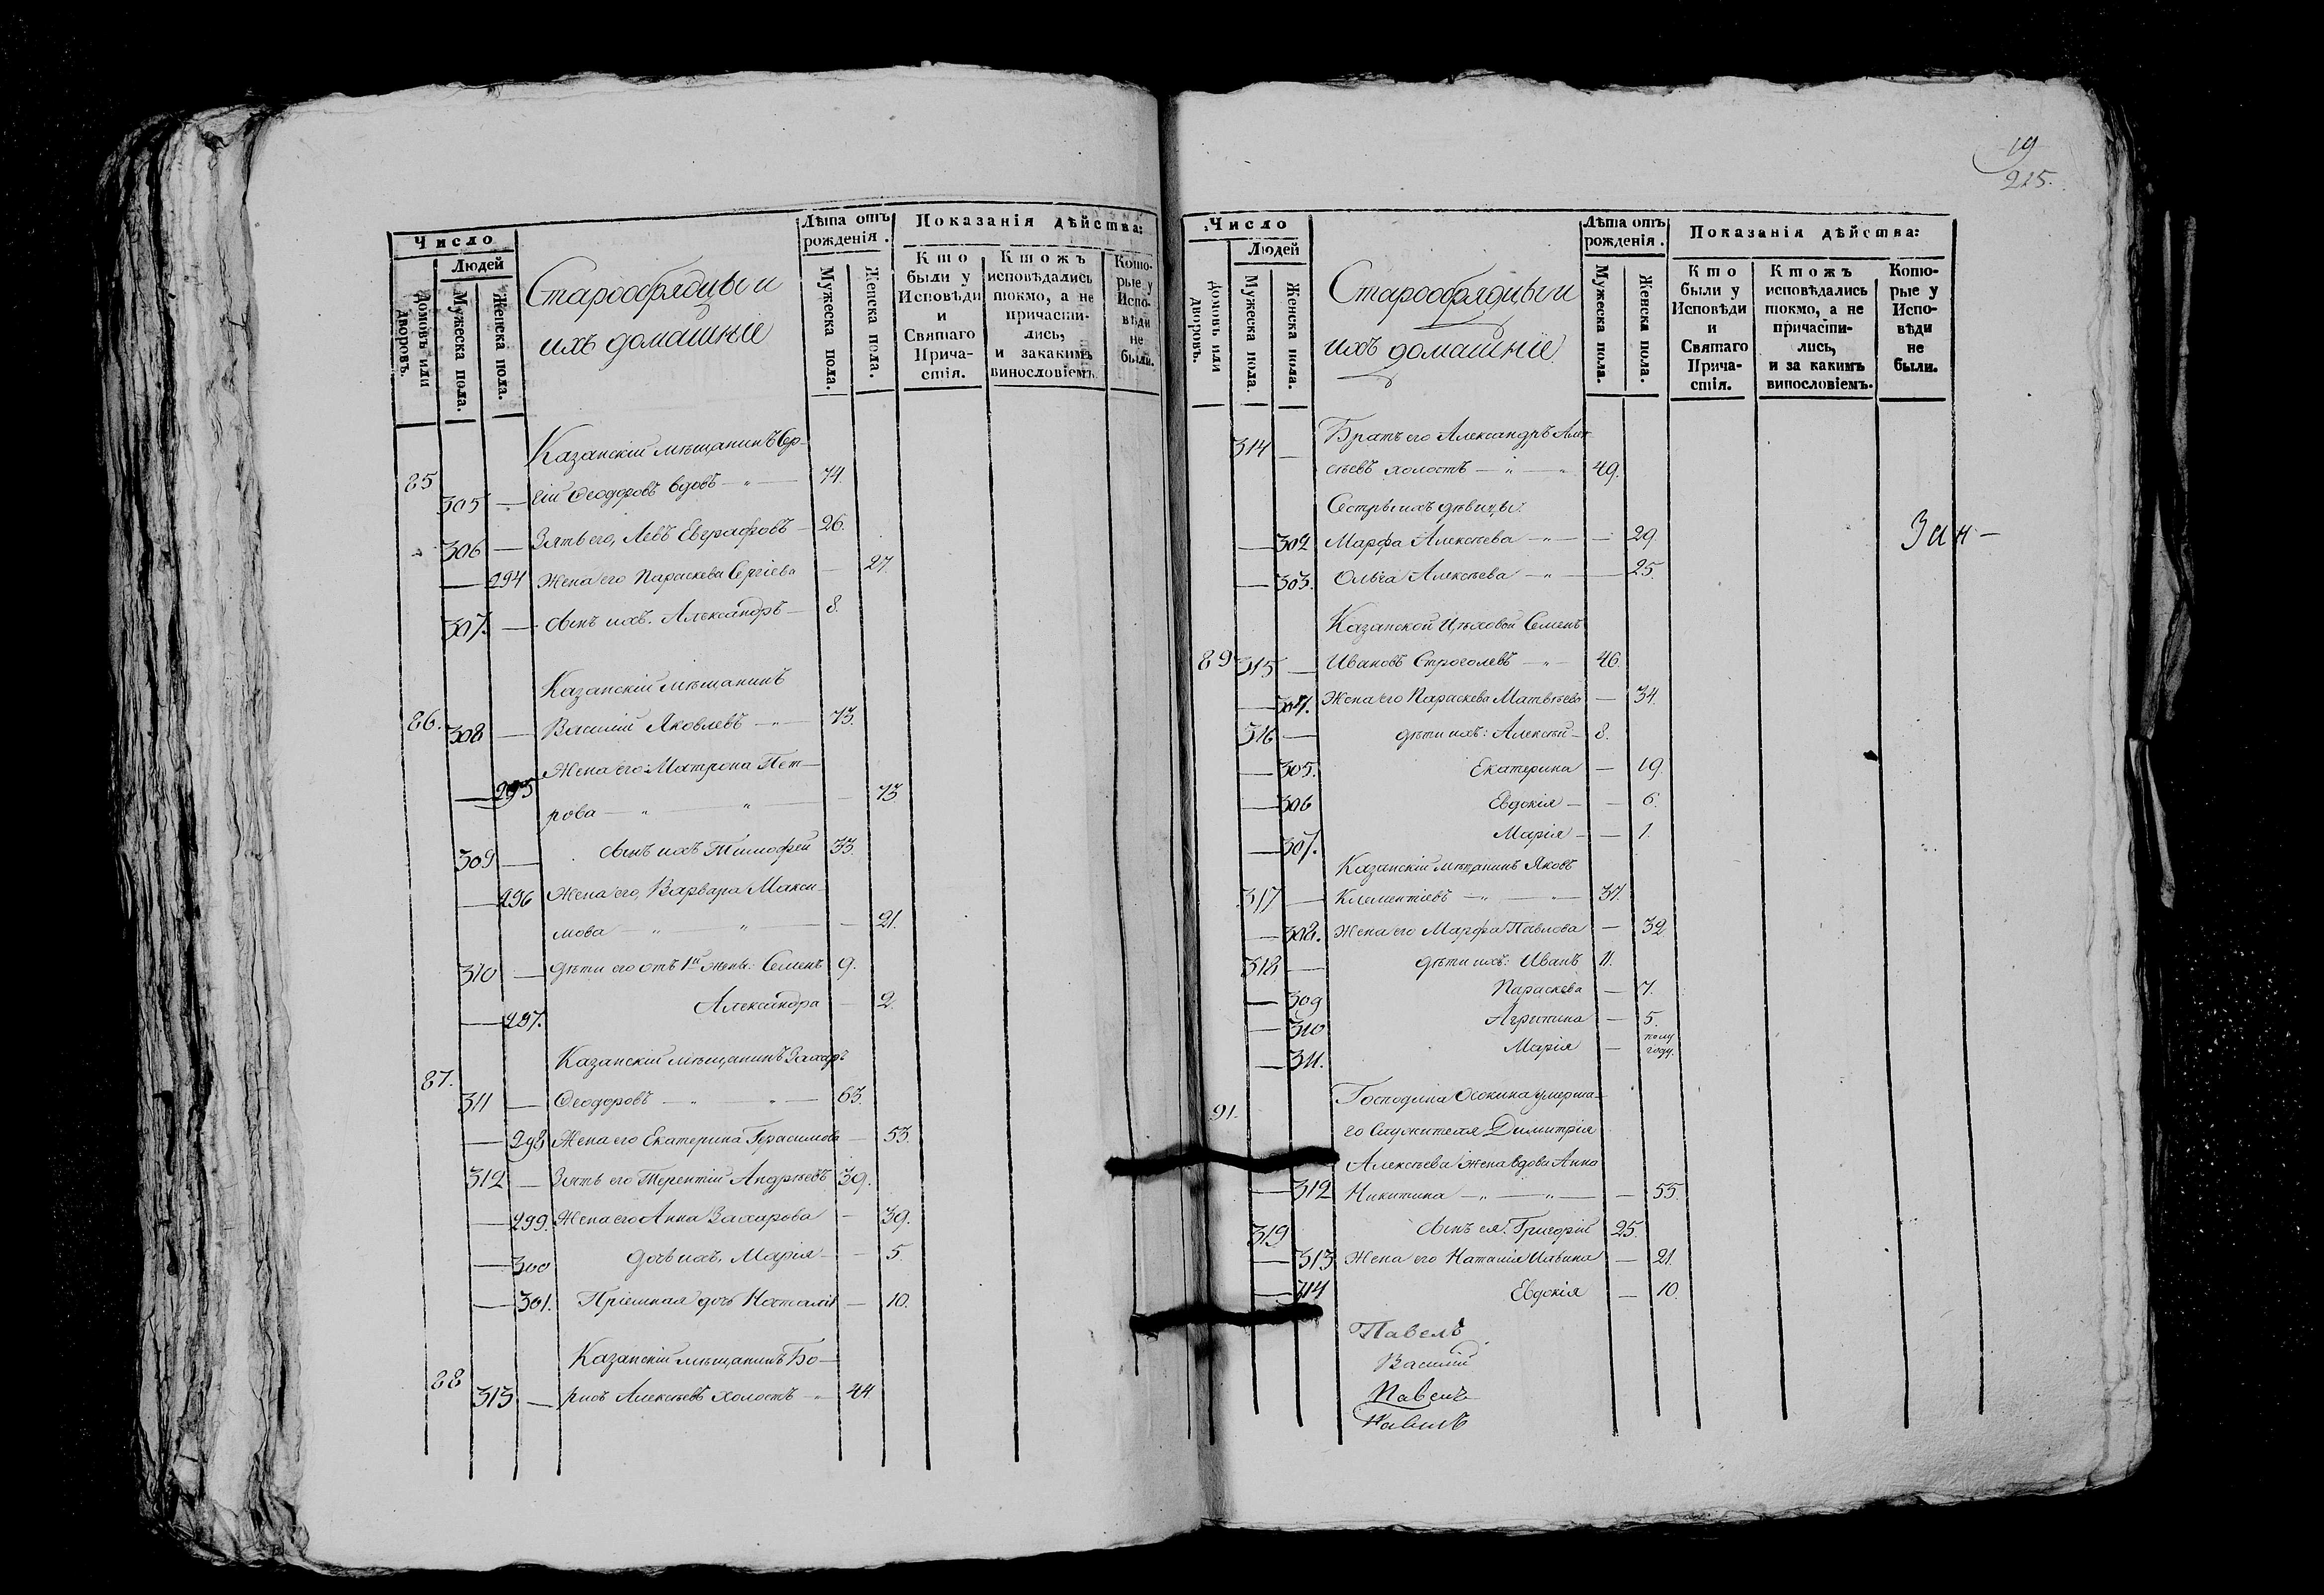 Число
Людей
Домовъ или дворовъ.
Мужеска пола.
Женска пола.
Старообрядцы и
ихъ домашніе
Лѣта отъ рожденія.
Мужеска пола.
Женска пола.
Показанія дѣйства:
Кто были у Исповѣди и Святаго Причастія.
Ктожъ исповѣдались токмо, а не причастились, и закакимъ винословіемъ.
Которые у Исповѣди не были.
Казанскій мѣщанинъ Сер-
85 305 — гій Ѳеодоровъ вдовъ — 74.
306 — Зять его, Левъ Евграфовъ — 26.
— 294 Жена его Параскева Сергіева — 27.
307. — Сынъ ихъ. Александръ — 8.
Казанскій мѣщанинъ
86. 308 — Василій Яковлевъ — 73.
Жена его: Матрона Пет-
— 295 рова — 73.
309 — Сынъ ихъ Тимофей 33.
— 296 Жена его, Варвара Макси-
мова — 21.
310 — Дѣти его отъ 1й жены: Семенъ 9.
— 297. Александра — 2.
Казанскій мѣщанинъ Захаръ
87. 311 — Ѳеодоровъ — 63.
— 298 Жена его Екатерина Герасимова — 53.
312 — Зять его Терентій Андрѣевъ 39.
— 299. Жена его Анна Захарова — 39.
— 300 Дочь ихъ, Марія — 5.
— 301. Пріемная дочь Наталія — 10.
Казанскій мѣщанинъ Бо-
88 313 — рисъ Алексѣевъ холостъ — 44
19
215.
Число
Людей
Домовъ или дворовъ.
Мужеска пола.
Женска пола.
Старообрядцы и
ихъ домашніе
Лѣта отъ рожденія.
Мужеска пола.
Женска пола.
Показанія дѣйства:
Кто были у Исповѣди и Святаго Причастія.
Ктожъ исповѣдались токмо, а не причастились, и за какимъ винословіемъ.
Которые у Исповѣди не были.
314 — Братъ его Александръ Алек-
сѣевъ холостъ — 49.
Сестры ихъ дѣвицы:
— 302 Марфа Алексѣева — 29.
— 303. Ольга Алексѣева — 25.
Казанской Цѣховой Семенъ
89 315 — Ивановъ Строголевъ — 46.
— 304. Жена его Параскева Матвѣева — 34.
316 — дѣти ихъ: Алексѣй — 8.
— 305. Екатерина — 19.
— 306 Евдокія — 6.
— 307. Марія — 1.
Казанскій мѣщанинъ Яковъ
317 — Клементіевъ — 37.
— 308. Жена его Марфа Павлова — 32
318 — дѣти ихъ: Иванъ 11.
— 309 Параскева — 7.
— 310 Агрипина — 5.
— 311. Марія — полу году.
Господина Осокина умерша-
91. го Служителя Димитрія
Алексѣева жена вдова Анна
— 312 Никитина — 55.
319 Сынъ ея. Григорій 25.
— 313 Жена его Наталія Ильина — 21.
— 314 Евдокія — 10.
Павелъ
Василій
Павелъ
Павелъ